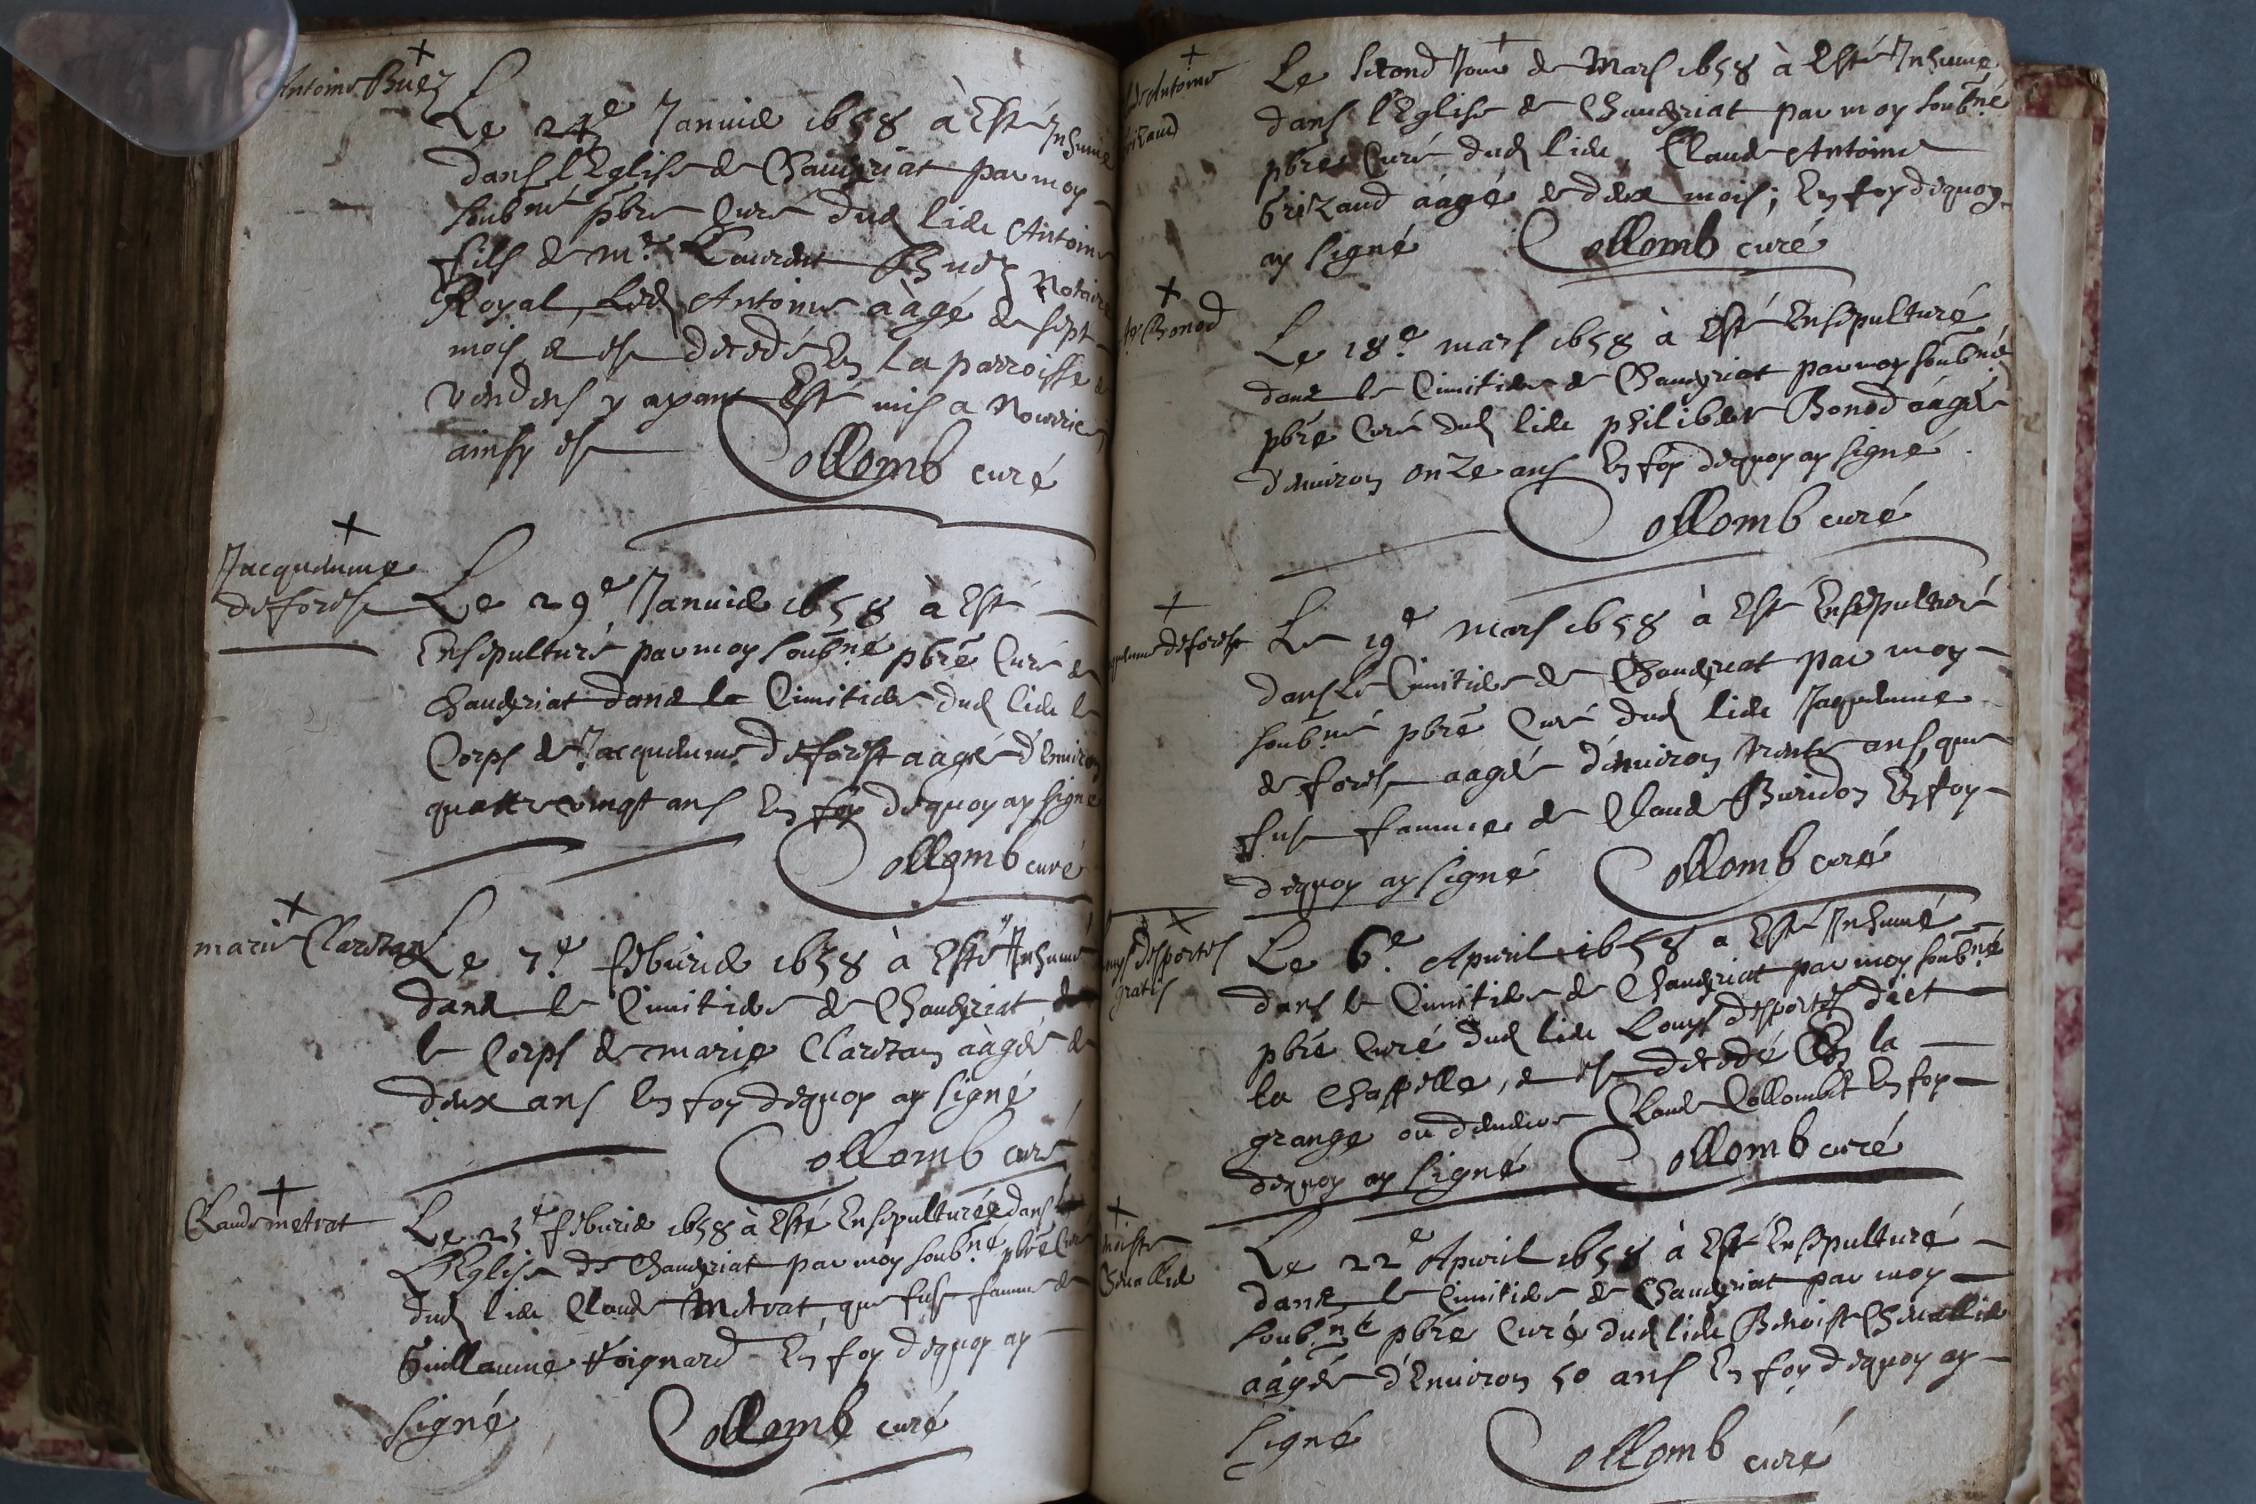 Antoine Buez
Le 24e Januier 1658 à Esté Inhumé
dans l'Eglise de Chaueyriat par moy
soubné pbre Curé dud lieu Antoine
fils de Mre Laurent Buez Notaire
Royal, Led Antoine aàgé de sept
mois, & est decedé En La parroisse de
Vendens y ayant Esté mis a Nourrice,
ainsy est Collomb curé
Jacquemme
deforest
Le 29e Januier 1658 à Esté
Ensepulturé par moy soubné pbre Curé de
Chaueyriat dans le Cimitiere dud lieu le
Corps de Jacquemme deforest aagée d'Enuiron
quattre vingt ans En foy dequoy ay signé
Collomb curé
marie Claretan
Le 7e feburier 1658 à Esté Inhumé
dans le Cimitiere de Chaueyriat
le Corps de marie Claretan aàgée de
deux ans En foy dequoy ay signé
Collomb curé
Claude metrat
Le 23e feburier 1658 à Esté Ensepulturée dans
L'Eglise de Chaueyriat par moy soubné pbre Curé
dud lieu Claude Metrat, que fust femme de
Guillaume Poignard En foy dequoy ay
signé Collomb curé
de Antoine
Le second Jour de Mars 1658 à Esté Inhumé
dans l'Eglise de Chaueyriat par moy soubné
pbre Curé dud lieu, Claude Antoine
brizaud aàgé de deux mois; En foy dequoy
ay signé Collomb curé
Bonod
Le 18e mars 1658 à Esté Ensepulturé
dans le Cimitiere de Chaueyriat par moy soubné
pbre Curé dud lieu philibert Bonod aàgé
d'enuiron onze ans En foy dequoy ay signé
Collomb curé
deforest
Le 19e Mars 1658 à Esté Ensepulturé
dans le Cimitiere de Chaueyriat par moy
soubné pbre Curé dud lieu Jaquemme
deforest aàgée d'enuiron trente ans, que
fust famme de Claude Buridon En foy
dequoy ay signé Collomb curé
desportes
gratis
Le 6e Apuril 1658 a Esté Inhumé
dans le Cimitiere de Chaueyriat par moy soubné
pbre Curé dud lieu Louys desportes dict
la Chappelle, & est decedé En la
grange ou demeure Claude Collombet En foy
dequoy ay signé Collomb curé
Cheuallier
Le 22e Apuril 1658 à Esté Ensepulturé
dans le Cimitiere de Chaueyriat par moy
soubné pbre Curé dud lieu Benoiste Cheuallier
aàgée d'Enuiron 50 ans En foy dequoy ay
signé Collomb curé